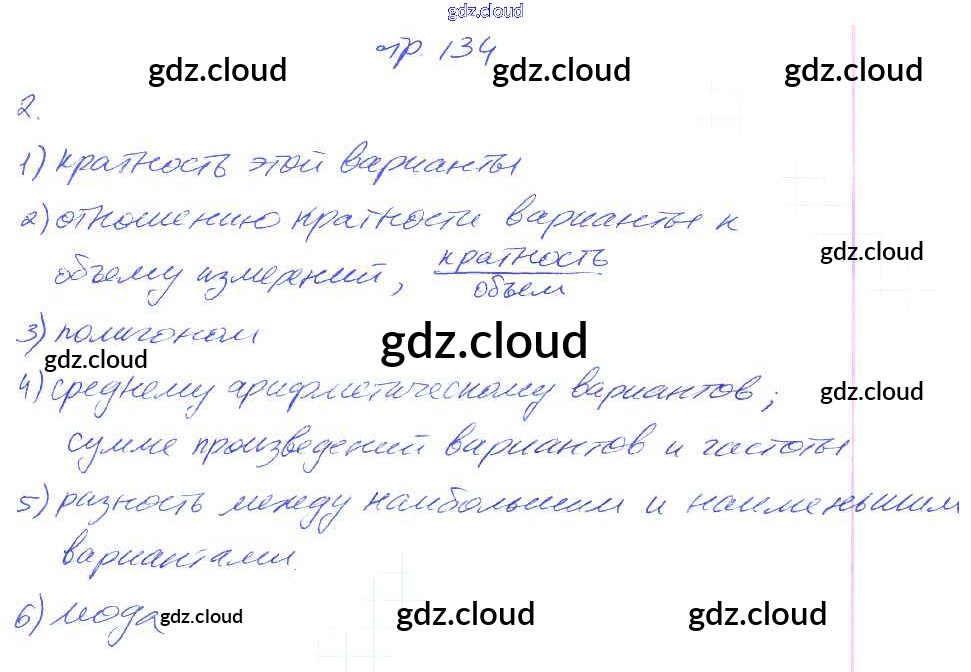 gdz.cloud
стр. 134
gdz.cloud gdz.cloud gdz.cloud
2.
1) кратность этой варианты
2) отношению кратности варианты к
gdz.cloud
объему измерений, кратность
объем
3) полигоном
gdz.cloud
gdz.cloud
4) среднему арифметическому вариантов;
gdz.cloud
сумме произведений вариантов и частоты
5) разность между наибольшим и наименьшим
вариантами.
6) мода
gdz.cloud gdz.cloud gdz.cloud